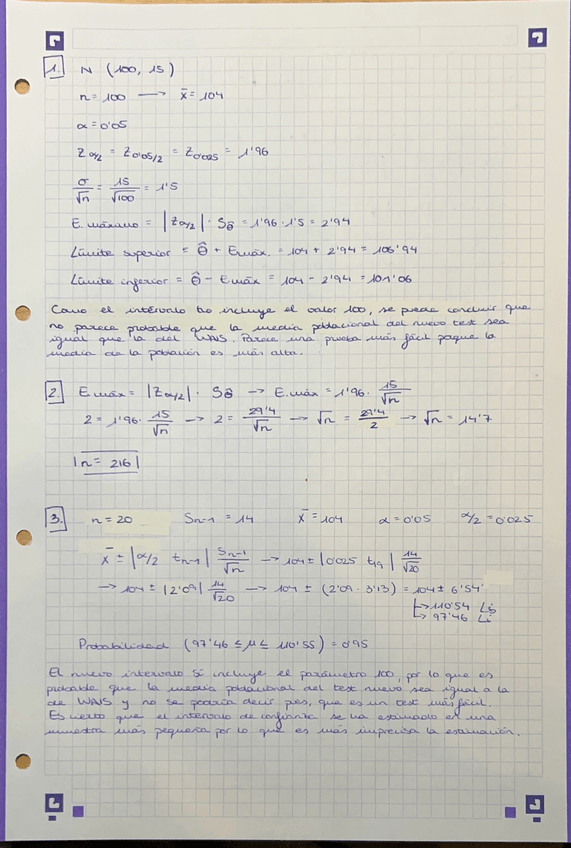 1. N (100, 15)
n = 100 → x̄ = 104
α = 0'05
Zα/2 = Z0'05/2 = Z0'025 = 1'96
σ/√n = 15/√100 = 1'5
E. máximo = |Zα/2| · Sθ̂ = 1'96 · 1'5 = 2'94
Límite superior = θ̂ + Emáx. = 104 + 2'94 = 106'94
Límite inferior = θ̂ - Emáx = 104 - 2'94 = 101'06
Como el intervalo no incluye el valor 100, se puede concluir que
no parece probable que la media poblacional del nuevo test sea
igual que la del WAIS. Parece una prueba más fácil porque la
media de la población es más alta.
2. E.máx = |Zα/2| · Sθ̂ → E.máx = 1'96 · 15/√n
2 = 1'96 · 15/√n → 2 = 29'4/√n → √n = 29'4/2 → √n = 14'7
n = 216
3. n = 20 Sn-1 = 14 x̄ = 104 α = 0'05 α/2 = 0'025
x̄ ± |α/2 tn-1| Sn-1/√n → 104 ± |0'025 t19| 14/√20
→ 104 ± |2'09| 14/√20 → 104 ± (2'09 · 3'13) = 104 ± 6'54
→ 110'54 Ls
→ 97'46 Li
Probabilidad (97'46 ≤ μ ≤ 110'55) = 0'95
El nuevo intervalo sí incluye el parámetro 100, por lo que es
probable que la media poblacional del test nuevo sea igual a la
de WAIS y no se podría decir pues, que es un test más fácil.
Es cierto que el intervalo de confianza se ha estimado en una
muestra más pequeña por lo que es más imprecisa la estimación.